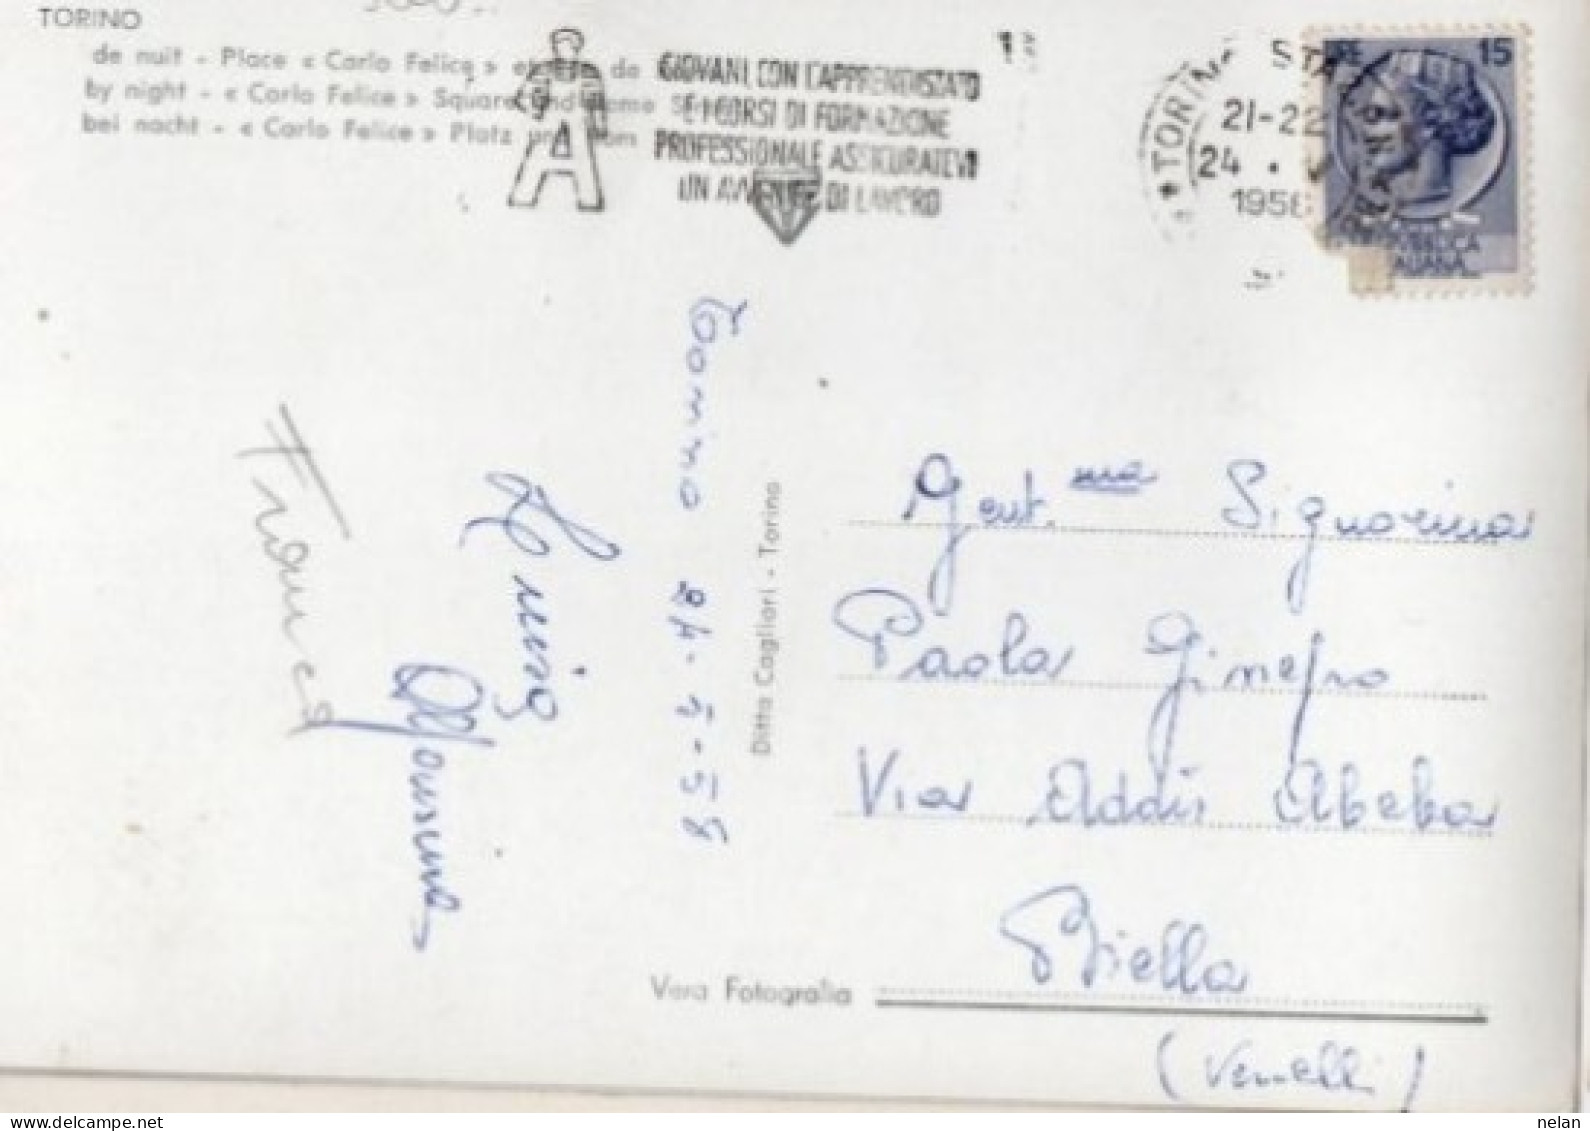 TORINO
de nuit - Place « Carlo Felice » et
by night - « Carlo Felice » Square and
bei nacht - « Carlo Felice » Platz und
GIOVANI, CON L'APPRENDISTATO
E I CORSI DI FORMAZIONE
PROFESSIONALE ASSICURATEVI
UN AVVENIRE DI LAVORO
A
TORINO
21-22
24
195
LIRE 15
REPUBBLICA
ITALIANA
Torino 24-5-58
Luisa
Franca
Ditta Cagliari - Torino
Gent.ma Signorina
Paola Ginepro
Via Addis Abeba
Biella
(Vercelli)
Vera Fotografia
nelan
www.delcampe.net